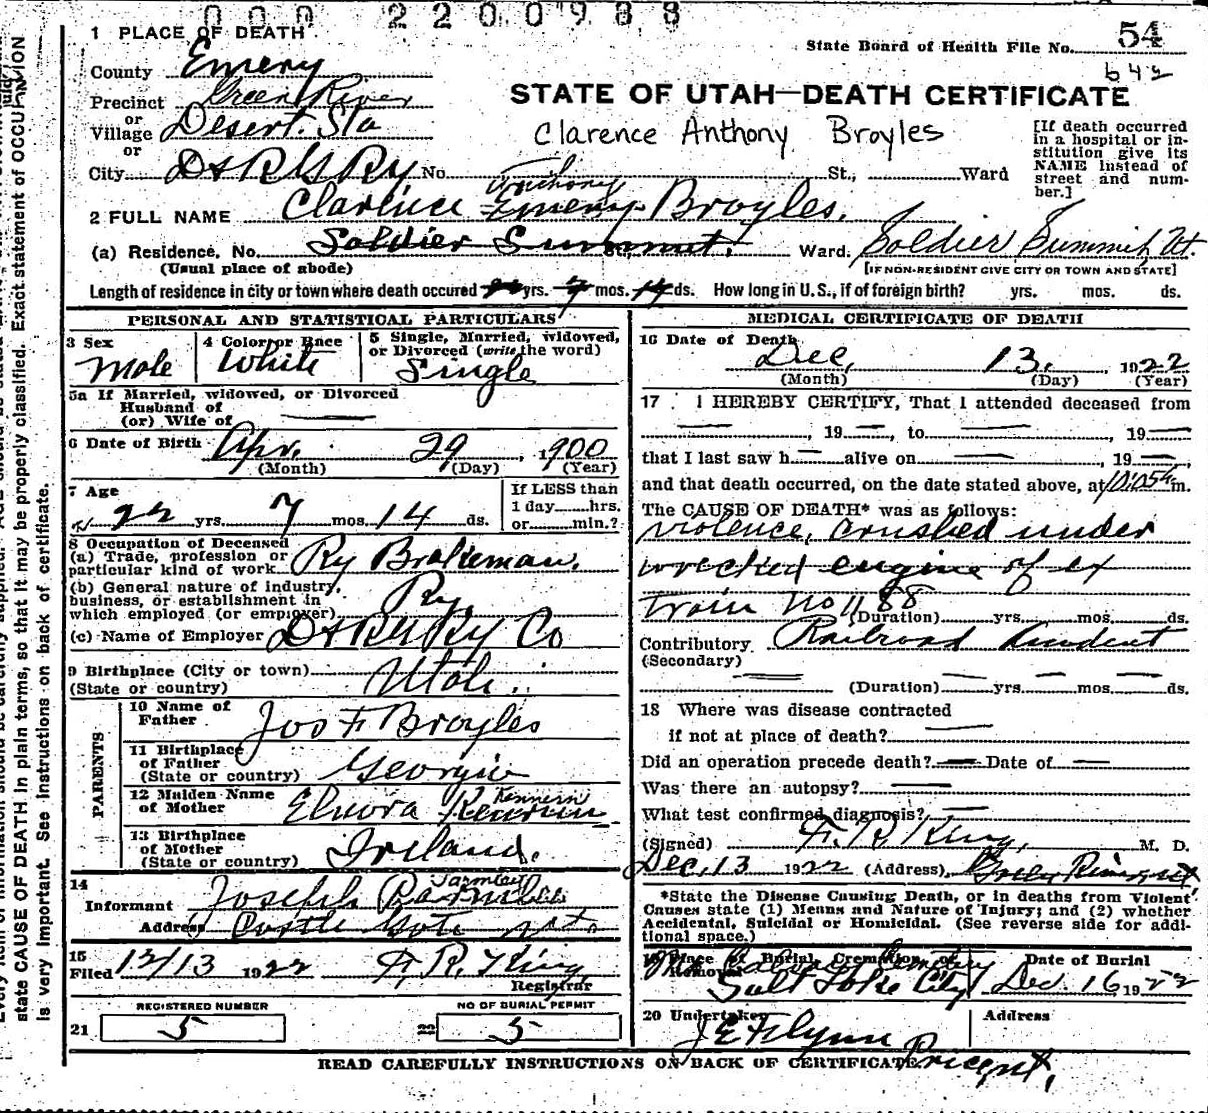 000 2200988
1 PLACE OF DEATH
State Board of Health File No. 54
642
County Emery
Precinct Green River
or
Village Desert. Sta
or
STATE OF UTAH—DEATH CERTIFICATE
Clarence Anthony Broyles
[If death occurred in a hospital or institution give its NAME instead of street and number.]
City D & R G Ry No. St., Ward
Anthony
2 FULL NAME Clarence Emery Broyles.
(a) Residence, No. Soldier Summit. St., Ward. Soldier Summit, Ut.
(Usual place of abode) [IF NON-RESIDENT GIVE CITY OR TOWN AND STATE]
Length of residence in city or town where death occured 22 yrs. 7 mos. 14 ds. How long in U. S., if of foreign birth? yrs. mos. ds.
PERSONAL AND STATISTICAL PARTICULARS
3 Sex Male
4 Color or Race White
5 Single, Married, widowed, or Divorced (write the word) Single
5a If Married, widowed, or Divorced
Husband of
(or) Wife of
6 Date of Birth Apr. 29, 1900
(Month) (Day) (Year)
7 Age
22 yrs. 7 mos. 14 ds.
If LESS than
1 day hrs.
or min.?
8 Occupation of Deceased
(a) Trade, profession or particular kind of work Ry Brakeman.
(b) General nature of industry, business, or establishment in which employed (or employer) Ry.
(c) Name of Employer D & R G Ry Co
9 Birthplace (City or town)
(State or country) Utah.
PARENTS
10 Name of Father Jos F Broyles
11 Birthplace of Father (State or country) Georgia
12 Maiden Name of Mother Elnora
13 Birthplace of Mother (State or country) Ireland.
14
Informant Joseph Parmley
Address Castle Gate Ut.
15
Filed 12/13 1922 F R. King
Registrar
REGISTERED NUMBER
21 5
NO OF BURIAL PERMIT
22 5
MEDICAL CERTIFICATE OF DEATH
16 Date of Death Dec, 13, 1922
(Month) (Day) (Year)
17 I HEREBY CERTIFY, That I attended deceased from
, 19 , to , 19
that I last saw h alive on , 19 ,
and that death occurred, on the date stated above, at m.
The CAUSE OF DEATH* was as follows:
violence, crushed under
wrecked engine of ex
train no 1188
(Duration) yrs. mos. ds.
Contributory Railroad Accident
(Secondary)
(Duration) yrs. mos. ds.
18 Where was disease contracted
if not at place of death?
Did an operation precede death? Date of
Was there an autopsy?
What test confirmed diagnosis?
(Signed) F. R. King, M. D.
Dec, 13 1922 (Address) Green River, Ut.
*State the Disease Causing Death, or in deaths from Violent Causes state (1) Means and Nature of Injury; and (2) whether Accidental, Suicidal or Homicidal. (See reverse side for additional space.)
19 Place of Burial, Cremation, or Removal Mt. Calvary Cemetery
Salt Lake City
Date of Burial
Dec. 16 1922
20 Undertaker J E Flynn
Address
Price, Ut,
READ CAREFULLY INSTRUCTIONS ON BACK OF CERTIFICATE
state CAUSE OF DEATH in plain terms, so that it may be properly classified. Exact statement of OCCUPATION
is very important. See instructions on back of certificate.